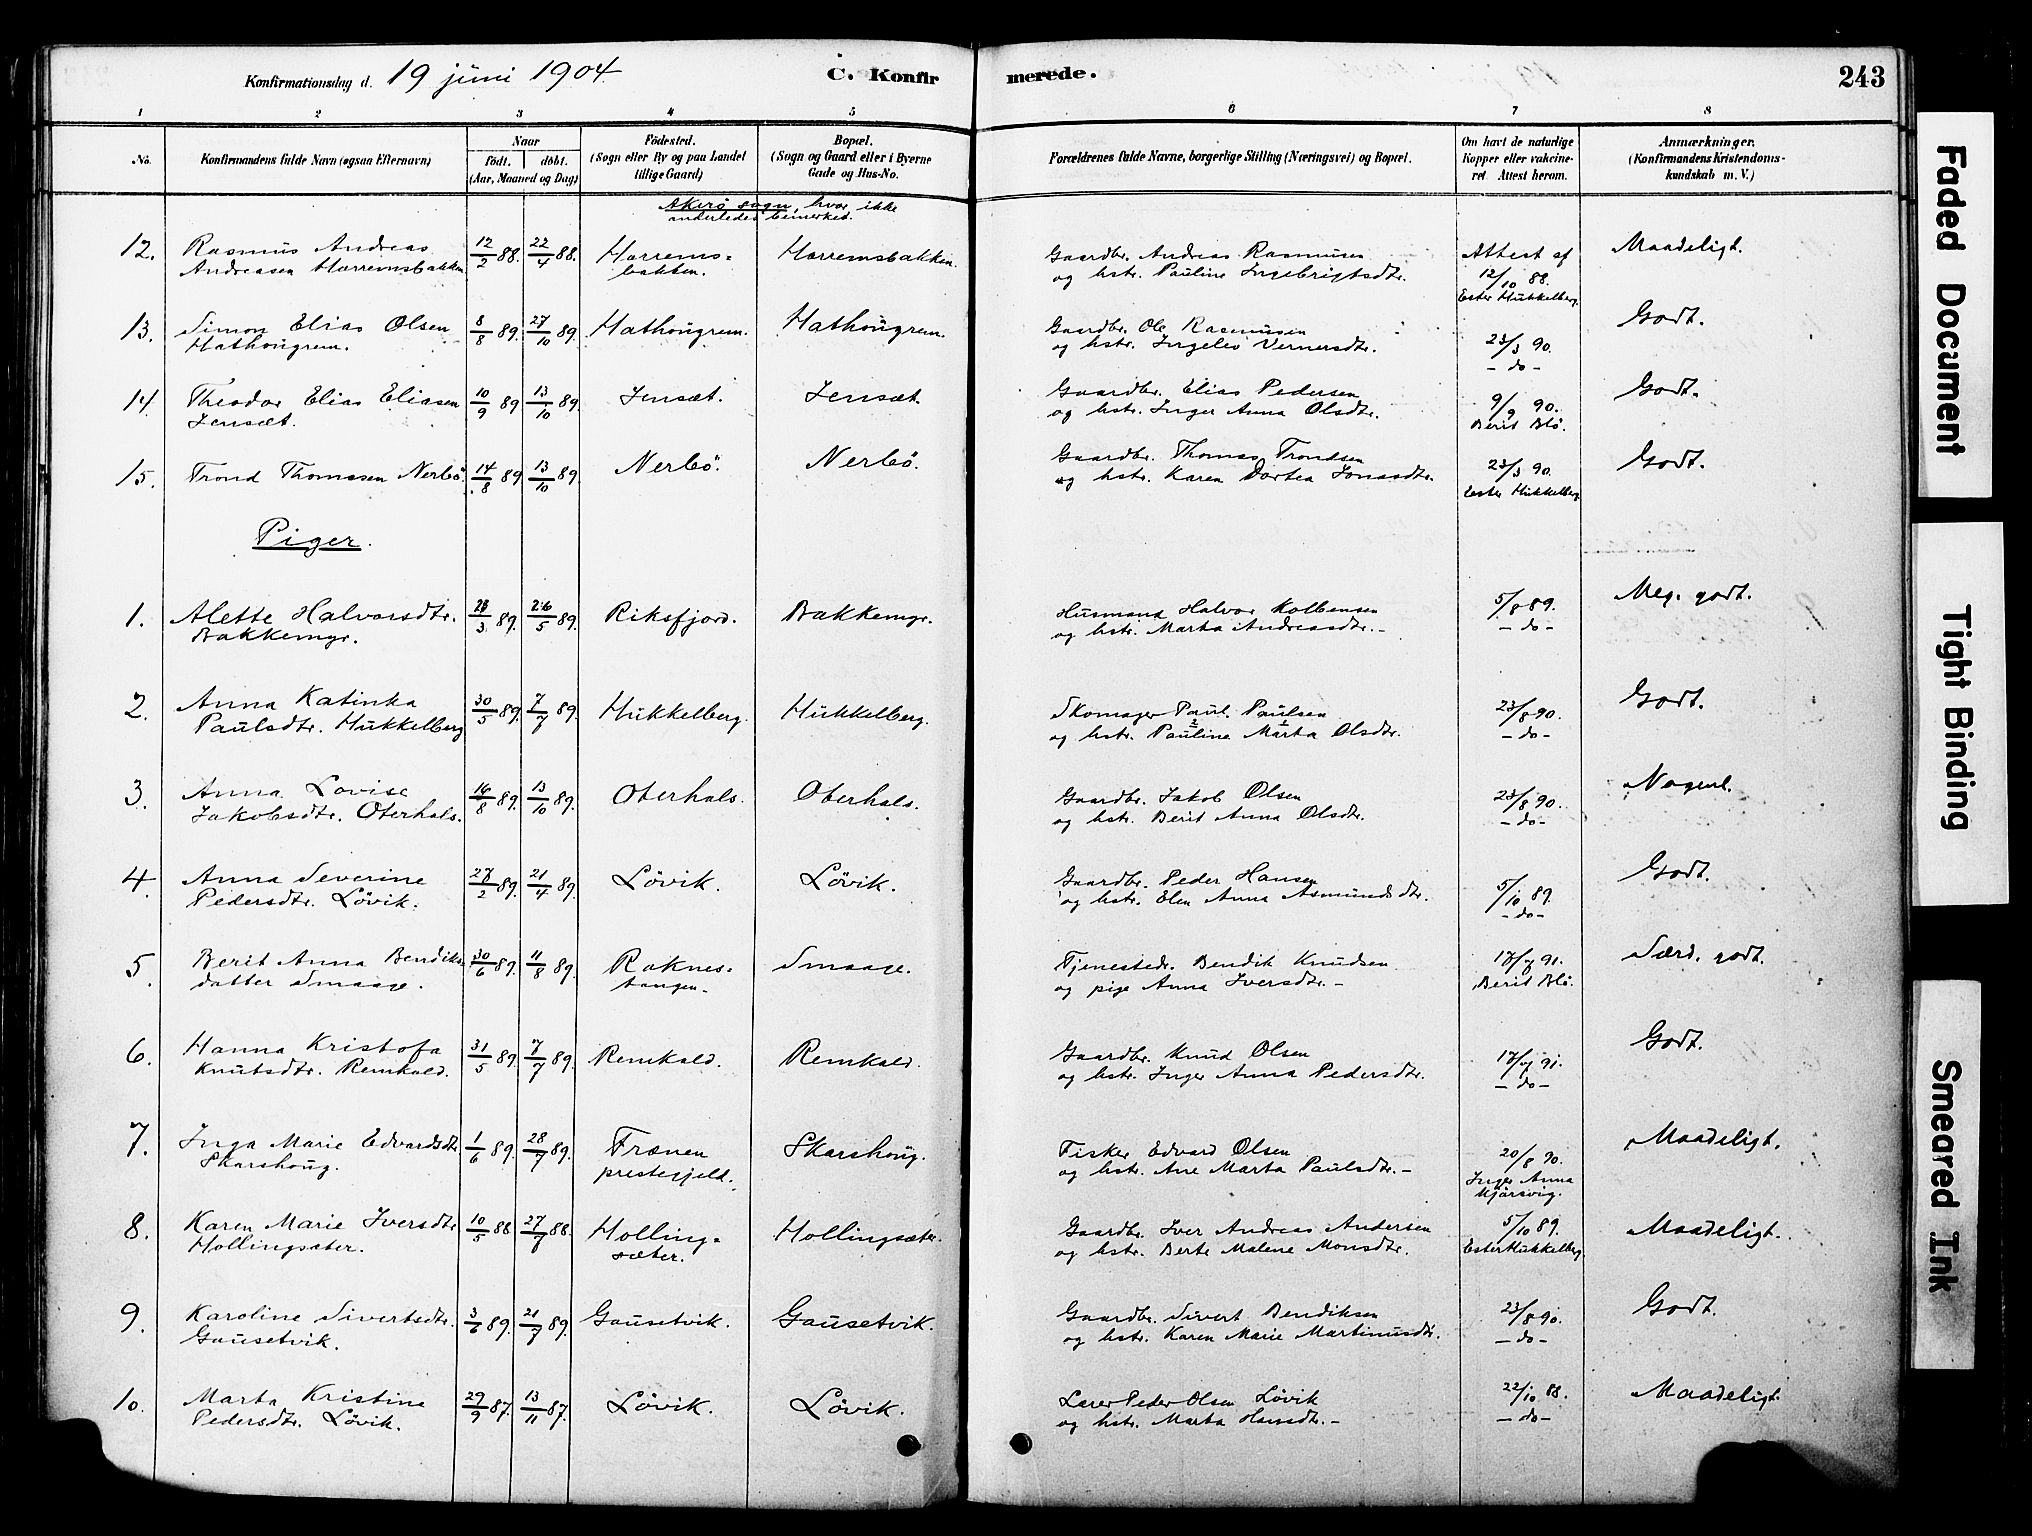 Konfirmationsdag d. 19 juni 1904.
C. Konfirmerede.
243
1 2 3 4 5 6 7 8
No.
Konfirmandens fulde Navn (ogsaa Efternavn)
Naar
født. døbt.
(Aar, Maaned og Dag)
Fødested.
(Sogn eller By og paa Landet
tillige Gaard)
Bopæl.
(Sogn og Gaard eller i Byerne
Gade og Hus-No.
Forældrenes fulde Navne, borgerlige Stilling (Næringsvei) og Bopæl.
Om havt de naturlige
Kopper eller vakcine-
ret. Attest herom.
Anmærkninger.
(Konfirmandens Kristendoms-
kundskab m. V.)
Akerö sogn, hvor ikke
anderledes bemerket.
12. Rasmus Andreas 12/2 88. 22/4 88. Harrems- Harremsbakken. Gaardbr. Andreas Rasmusen Attest af Maadeligt.
Andreasen Harremsbakken bakken. og hstr. Pauline Ingebrigtsdtr. 12/10 88.
Ester Hukkelberg.
13. Simon Elias Olsen 8/8 89. 27/10 89. Hathougrem. Hathougrem. Gaardbr. Ole Rasmusen Godt.
Hathougrem. og hstr. Ingeleö Vernersdtr. 23/3 90.
- do -
14. Theodor Elias Eliasen 10/9 89 13/10 89. Jensæt. Jensæt. Gaardbr. Elias Pedersen 9/9 90. Godt.
Jensæt. og hstr. Inger Anna Olsdtr. Berit Blö.
15. Trond Thomasen Nerbö. 14/8 89 13/10 89 Nerbö. Nerbö. Gaardbr. Thomas Trondsen 23/3 90. Godt.
og hstr. Karen Dortea Jonasdtr. Ester Hukkelberg
Piger.
1. Alette Halvorsdtr. 28/3 89. 26/5 89. Riksfjord. Bakkemyr. Husmand Halvor Kolbensen 5/8 89. Meg. godt.
Bakkemyr. og hstr. Marta Andreasdtr. - - do -
2. Anna Katinka 30/5 89. 7/7 89. Hukkelberg. Hukkelberg. Skomager Paul Paulsen 23/8 90. Godt.
Paulsdtr. Hukkelberg og hstr. Pauline Marta Olsdtr. - do -
3. Anna Lovise 16/8 89. 13/10 89. Oterhals. Oterhals. Gaardbr. Jakob Olsen 23/8 90. Nogenl.
Jakobsdtr. Oterhals. og hstr. Berit Anna Olsdtr. - do -
4. Anna Severine 27/2 89. 21/4 89. Lövik. Lövik. Gaardbr. Peder Hansen 5/10 89. Godt.
Pedersdtr. Lövik. og hstr. Elen Anna Asmundsdtr. - do -
5. Berit Anna Bendiks- 30/6 89. 11/8 89. Raknes- Smaage. Tjenestedr. Bendik Knudsen 17/7 91. Særd. godt.
datter Smaage. tangen. og pige Anna Iversdtr. - Berit Blö.
6. Hanna Kristofa 31/5 89. 7/7 89. Remkald. Remkald. Gaardbr. Knud Olsen 17/7 91. Godt.
Knutsdtr. Remkald. og hstr. Inger Anna Pedersdtr. - do -
7. Inga Marie Edvardsdtr 1/6 89. 28/7 89. Frænen Skarshoug. Fisker Edvard Olsen 20/8 90. Maadeligt.
Skarshoug. prestegjeld. og hstr. Ane Marta Paulsdtr. - Inger Anna
Mjörsvig.
8. Karen Marie Iversdtr 10/5 88. 27/7 88. Holling- Hollingsæter. Gaardbr. Iver Andreas Andersen 5/10 89. Maadeligt.
Hollingsæter. sæter. og hstr. Berte Malene Monsdtr. Ester Hukkelberg.
9. Karoline Sivertsdtr. 3/6 89. 21/7 89. Gausetvik. Gausetvik. Gaardbr. Sivert Bendiksen 23/8 90. Godt.
Gausetvik. og hstr. Karen Marie Martinusdtr. - do -
10. Marta Kristine 29/9 87. 13/11 87. Lövik. Lövik. Lærer Peder Olsen Lövik 22/10 88. Maadeligt.
Pedersdtr. Lövik. og hstr. Marta Hansdtr. - - do -
Faded Document
Tight Binding
Smeared Ink